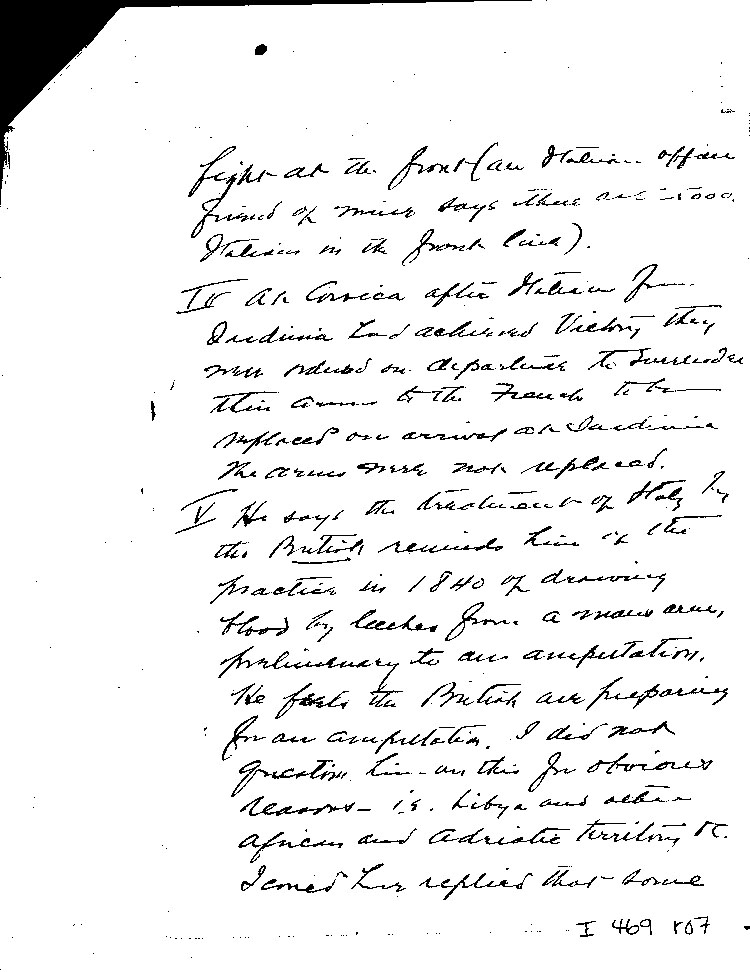 fight at the front (an Italian officer
friend of mine says there are 5000
Italians in the front line).
IV At Corsica after Italian from
Sardinia had achieved Victory they
were ordered on departure to surrender
their arms to the French to be
replaced on arrival at Sardinia
The arms were not replaced.
V He says the treatment of Italy by
the British reminds him of the
practice in 1840 of drawing
blood by leeches from a mans arm,
preliminary to an amputation.
He feels the British are preparing
for an amputation. I did not
question him on this for obvious
reasons - i.e. Libya and other
African and Adriatic territory &c.
I could have replied that some
I 469 107